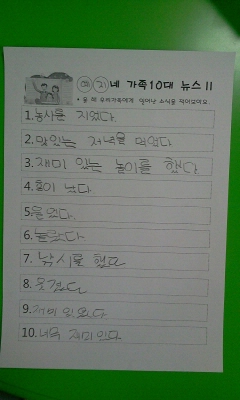 예지네 가족10대 뉴스 !!
• 올 해 우리가족에게 일어난 소식을 적어보아요.
1. 농사를 지었다.
2. 맛있는 저녁을 먹었다
3. 재미 있는 놀이를 했다
4. 힘이 났다.
5. 울었다.
6. 놀았다.
7. 낚시를 했다
8. 웃겼다.
9. 재미 있었다.
10. 너무 재미 있다.